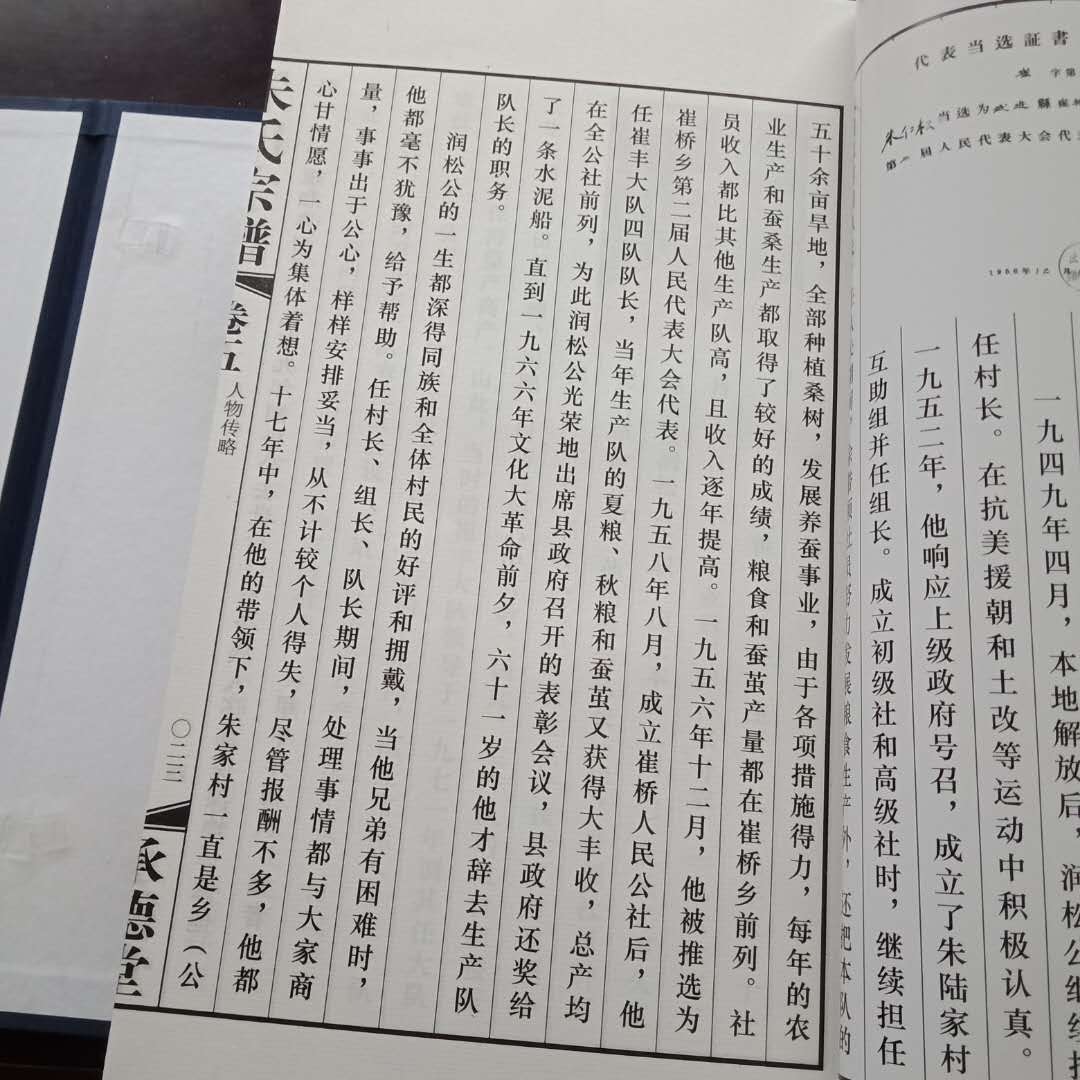 代表当选証書
字第
当选为武进縣崔桥
届人民代表大会代
1956年12月
一九四九年四月，本地解放后，润松公继续担
任村长。在抗美援朝和土改等运动中积极认真。
一九五二年，他响应上级政府号召，成立了朱陆家村
互助组并任组长。成立初级社和高级社时，继续担任
发展粮食生产外，还把本队的
五十余亩旱地，全部种植桑树，发展养蚕事业，由于各项措施得力，每年的农
业生产和蚕桑生产都取得了较好的成绩，粮食和蚕茧产量都在崔桥乡前列。社
员收入都比其他生产队高，且收入逐年提高。一九五六年十二月，他被推选为
崔桥乡第二届人民代表大会代表。一九五八年八月，成立崔桥人民公社后，他
任崔丰大队四队队长，当年生产队的夏粮、秋粮和蚕茧又获得大丰收，总产均
在全公社前列，为此润松公光荣地出席县政府召开的表彰会议，县政府还奖给
了一条水泥船。直到一九六六年文化大革命前夕，六十一岁的他才辞去生产队
队长的职务。
润松公的一生都深得同族和全体村民的好评和拥戴，当他兄弟有困难时，
他都毫不犹豫，给予帮助。任村长、组长、队长期间，处理事情都与大家商
量，事事出于公心，样样安排妥当，从不计较个人得失，尽管报酬不多，他都
心甘情愿，一心为集体着想。十七年中，在他的带领下，朱家村一直是乡（公
朱氏宗谱
卷五
人物传略
〇二三
承德堂